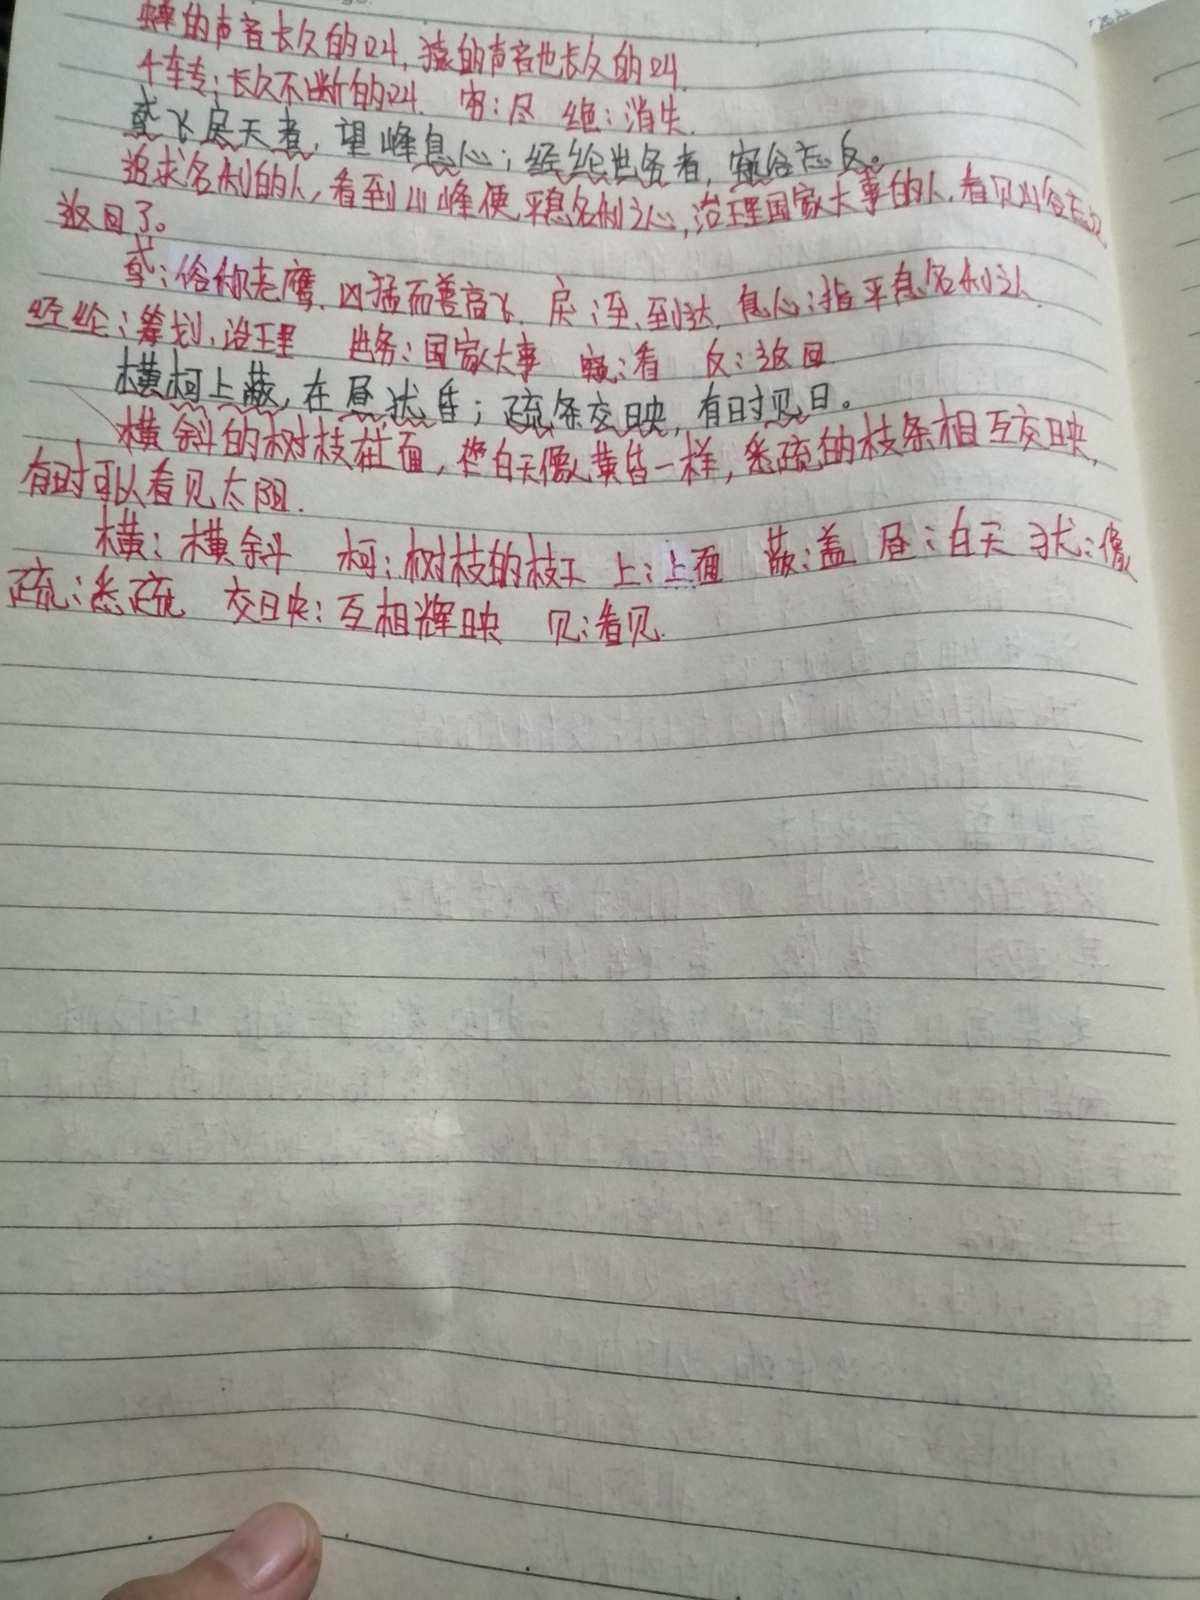 蝉的声音长久的叫,猿的声音也长久的叫.
千转:长久不断的叫. 穷:尽 绝:消失.
鸢飞戾天者,望峰息心;经纶世务者,窥谷忘反。
追求名利的人,看到山峰便平息名利之心,治理国家大事的人,看见山谷忘记
返回了。
鸢:俗称老鹰,凶猛而善高飞. 戾:至、到达. 息心:指平息名利之心.
经纶:筹划、治理 世务:国家大事 窥:看 反:返回
横柯上蔽,在昼犹昏;疏条交映,有时见日。
横斜的树枝在上面,在白天像黄昏一样,稀疏的枝条相互交映,
有时可以看见太阳.
横:横斜 柯:树枝的枝干 上:上面 蔽:盖 昼:白天 犹:像
疏:稀疏 交映:互相辉映 见:看见.